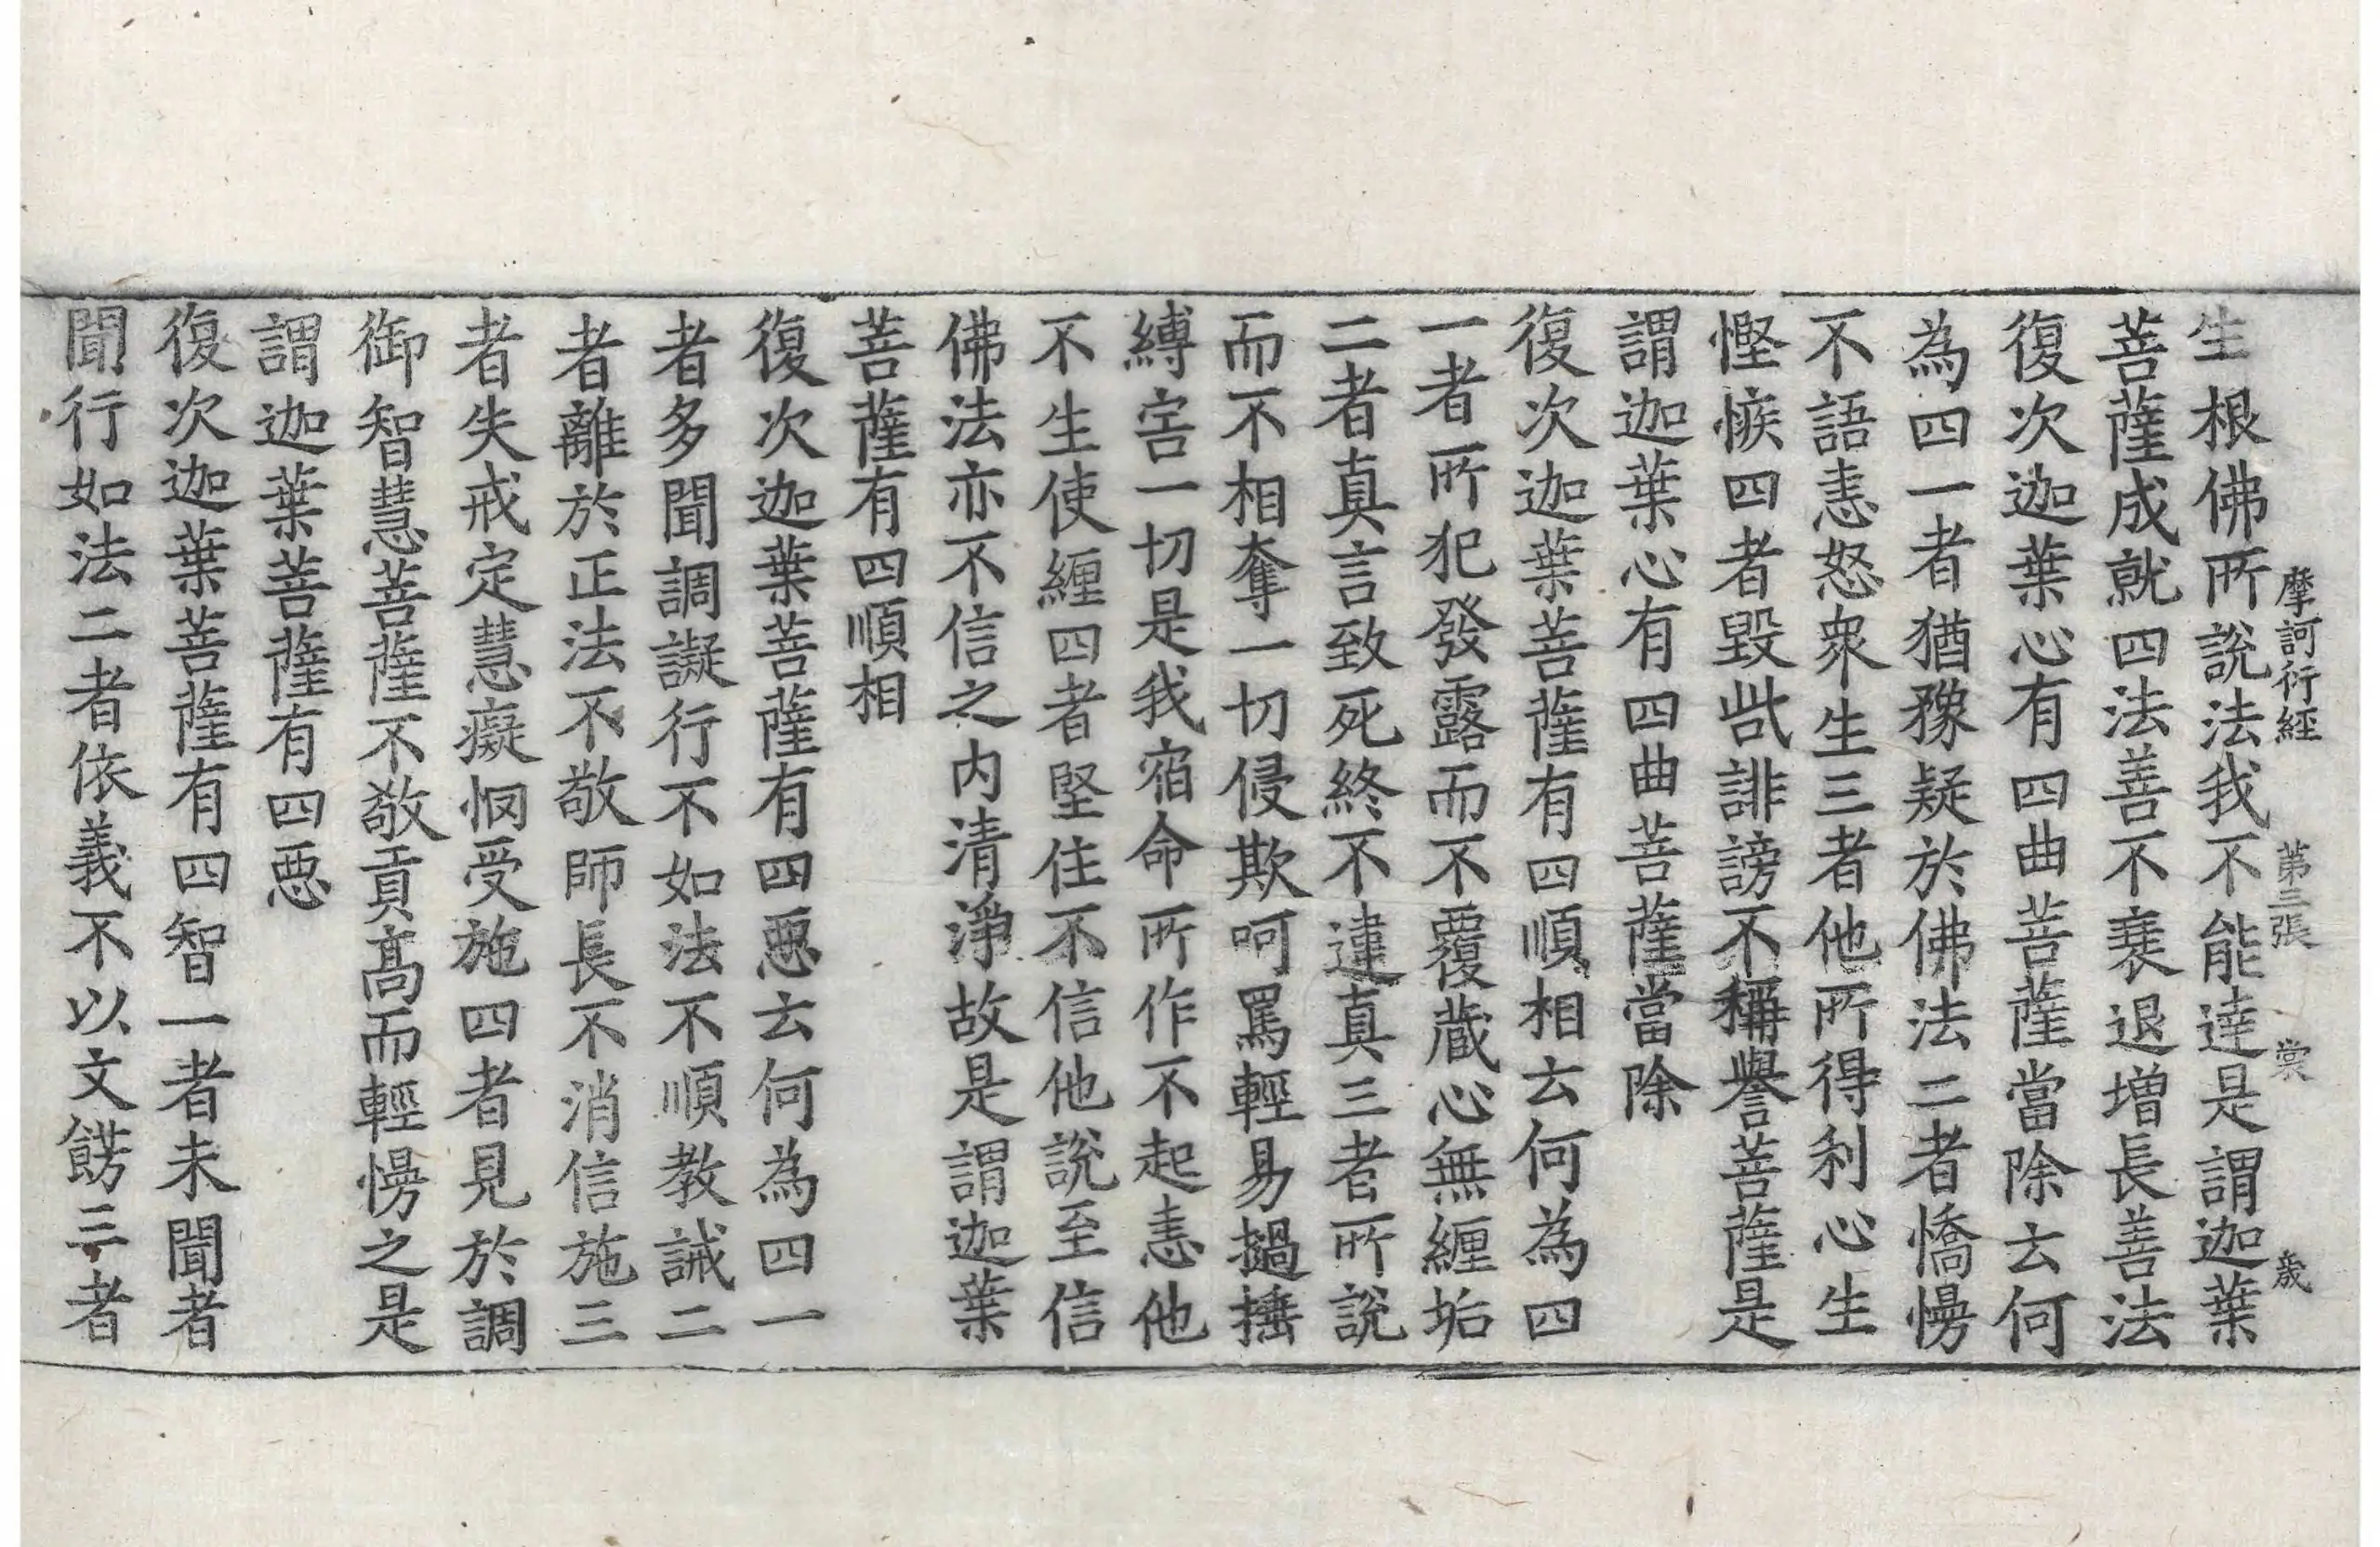 摩訶衍經 第三張 裳 歲
生根佛所說法我不能達是謂迦葉
菩薩成就四法善不衰退增長善法
復次迦葉心有四曲菩薩當除云何
為四一者猶豫疑於佛法二者憍慢
不語恚怒衆生三者他所得利心生
慳悋四者毀呰誹謗不稱譽菩薩是
謂迦葉心有四曲菩薩當除
復次迦葉菩薩有四順相云何為四
一者所犯發露而不覆蔵心無纏垢
二者真言致死終不違真三者所說
而不相奪一切侵欺呵罵輕易撾捶
縛害一切是我宿命所作不起恚他
不生使纏四者堅住不信他說至信
佛法亦不信之内清淨故是謂迦葉
菩薩有四順相
復次迦葉菩薩有四悪云何為四一
者多聞調譺行不如法不順教誡二
者離於正法不敬師長不消信施三
者失戒定慧癡惘受施四者見於調
御智慧菩薩不敬貢髙而輕慢之是
謂迦葉菩薩有四悪
復次迦葉菩薩有四智一者未聞者
聞行如法二者依義不以文餝三者